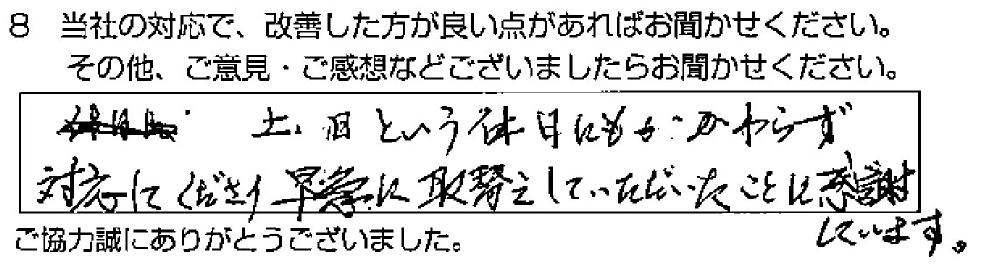 8 当社の対応で、改善した方が良い点があればお聞かせください。
その他、ご意見・ご感想などございましたらお聞かせください。
土、日という休日にもかかわらず
対応してくださり早急に取替えしていただいたことに感謝
しています。
ご協力誠にありがとうございました。